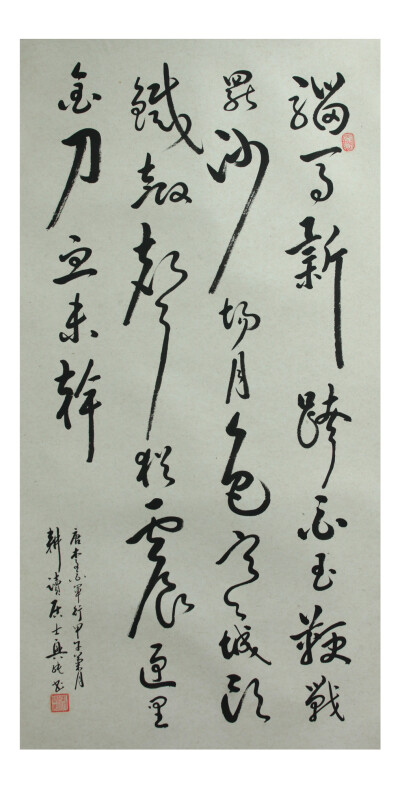 騮馬新跨白玉鞍戰
罷沙場月色寒城頭
鐵鼓聲猶震匣里
金刀血未幹
唐李白軍行甲子月
耕讀居士興書